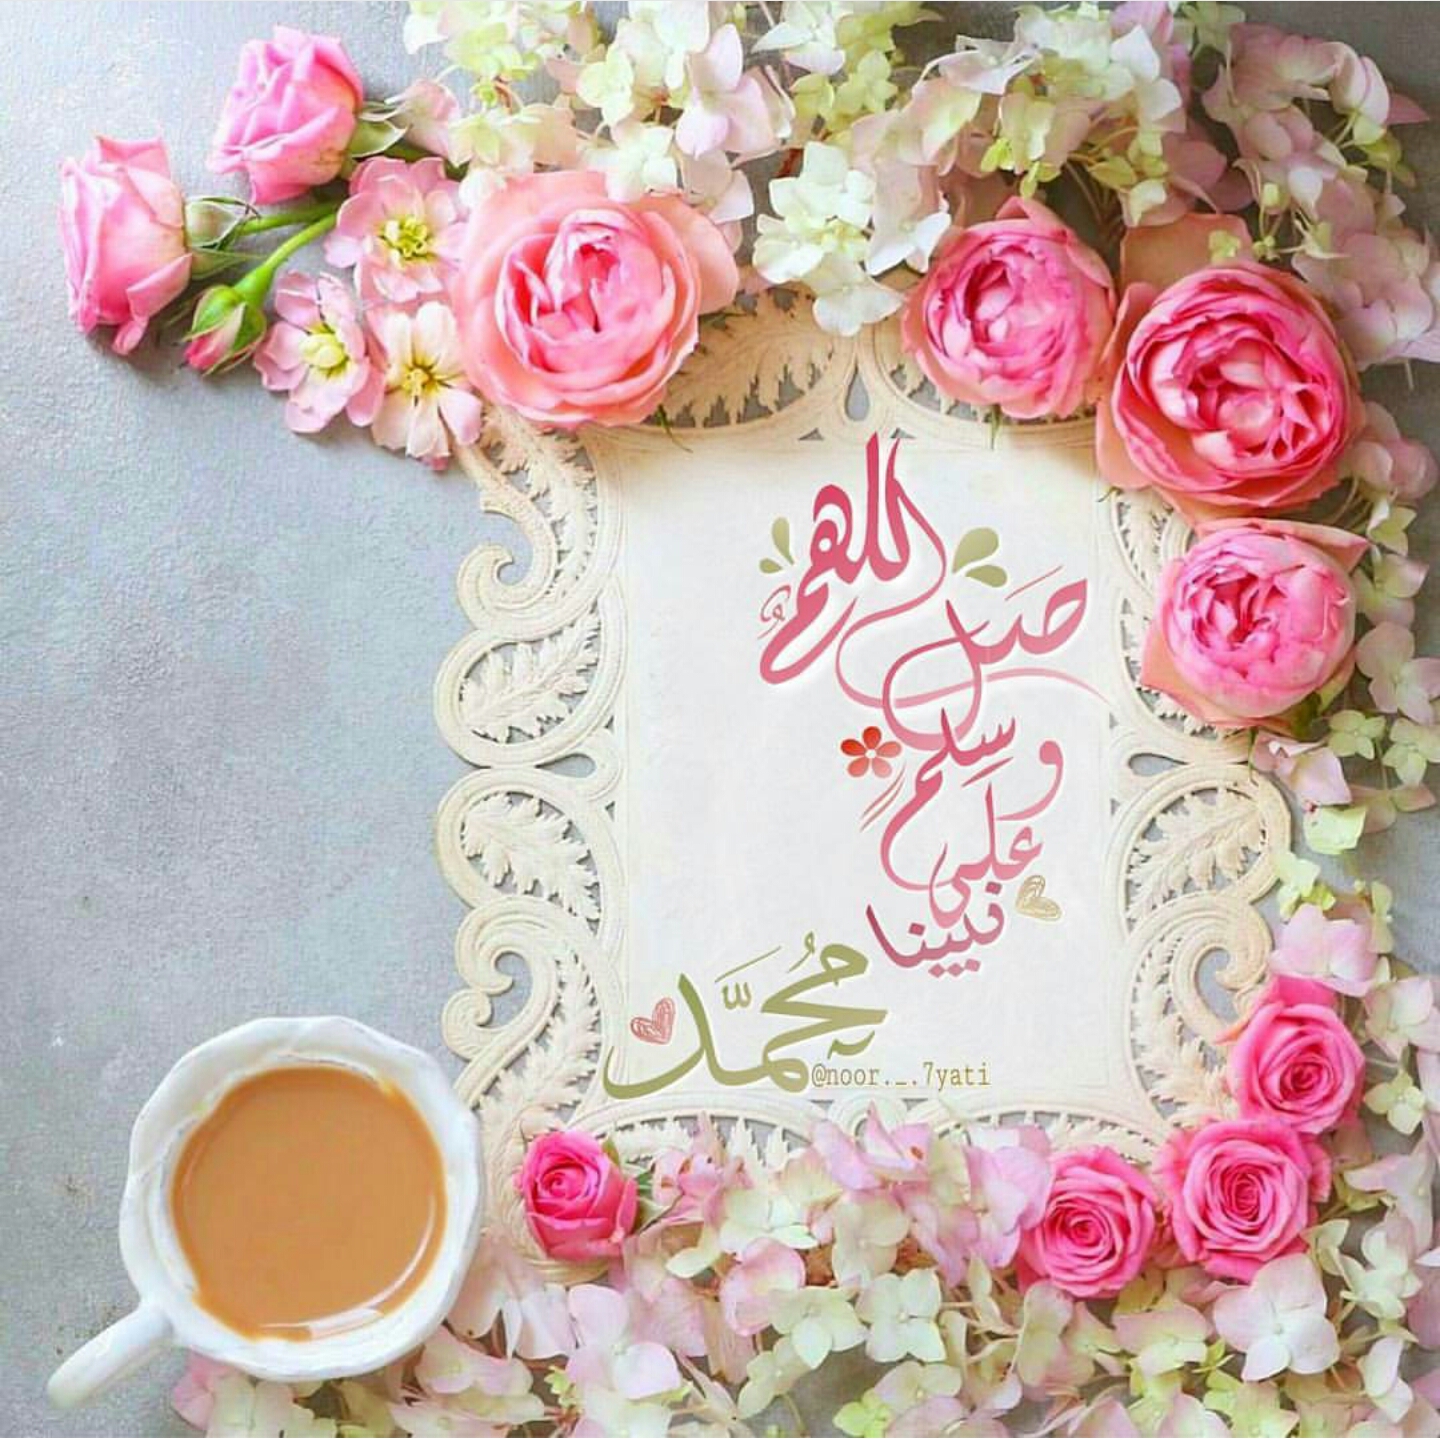 اللهم
صَل
وسلم
على
نبينا
مُحمَّد
@noor._.7yati